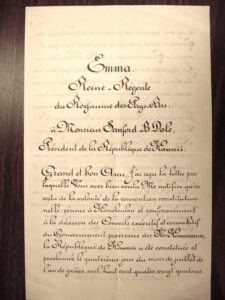 Emma
Reine-Régente
du Royaume des Pays-Bas,
à Monsieur Sanford B. Dole,
Président de la République de Hawaii.
Grand et bon Ami, J'ai reçu la lettre par
laquelle Vous avez bien voulu Me notifier qu'en
vertu de la volonté de la convention constitution-
nelle, réunie à Honolulu et conformément
à la décision des Conseils exécutif et consultatif
du Gouvernement provisoire des Iles Hawaiiennes,
la République de Hawaii a été constituée et
proclamée le quatrième jour du mois de juillet de
l'an de grâce mil huit cent quatre vingt quatorze